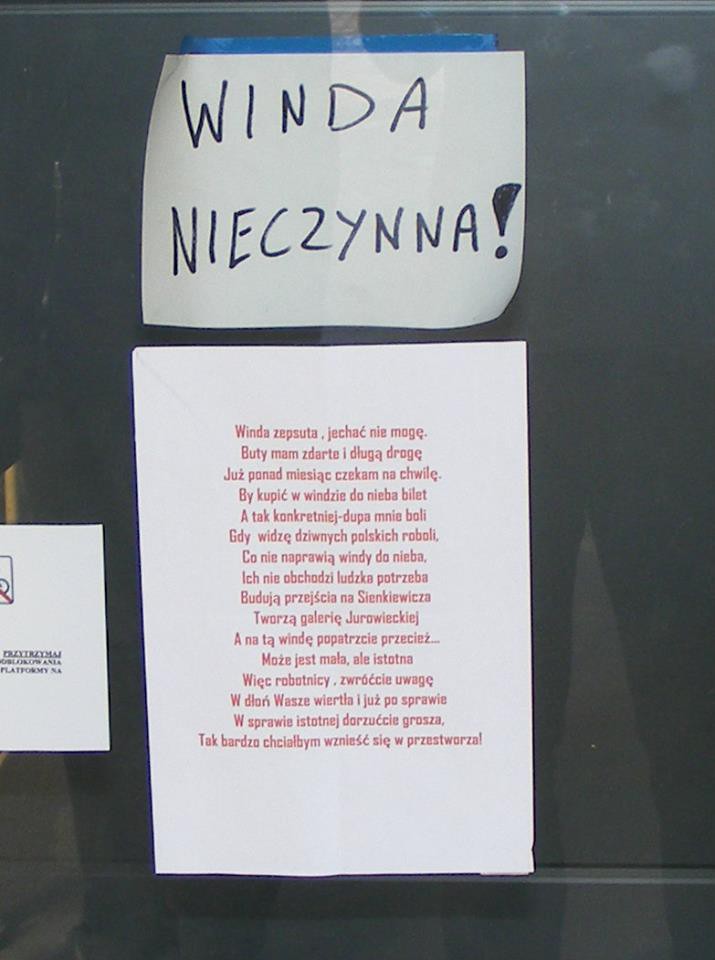 WINDA
NIECZYNNA!
Winda zepsuta , jechać nie mogę.
Buty mam zdarte i długą drogę
Już ponad miesiąc czekam na chwilę.
By kupić w windzie do nieba bilet
A tak konkretniej-dupa mnie boli
Gdy widzę dziwnych polskich roboli,
Co nie naprawią windy do nieba,
Ich nie obchodzi ludzka potrzeba
Budują przejścia na Sienkiewicza
Tworzą galerię Jurowieckiej
A na tą windę popatrzcie przecież...
Może jest mała, ale istotna
Więc robotnicy , zwróćcie uwagę
W dłoń Wasze wiertła i już po sprawie
W sprawie istotnej dorzućcie grosza,
Tak bardzo chciałbym wznieść się w przestworza!
PRZYTRZYMAJ
ODBLOKOWANIA
PLATFORMY NA